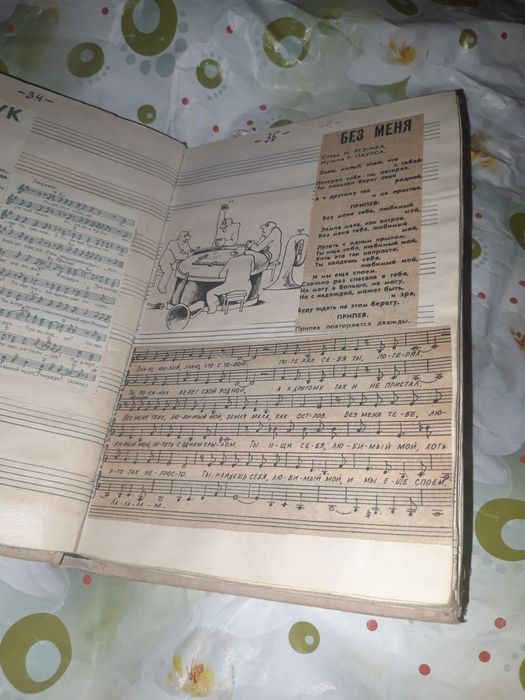 - 34 -
УК
- 35 -
БЕЗ МЕНЯ
Слова И. РЕЗНИКА.
Музыка Р. ПАУЛСА.
Знаю, милый, знаю, что
с тобой:
Потерял себя ты, потерял.
Ты покинул берег свой
родной,
А к другому так и не пристал.
ПРИПЕВ:
Без меня тебе, любимый
мой,
Земля мала, как остров.
Без меня тебе, любимый
мой,
Лететь с одним крылом.
Ты ищи себя, любимый мой,
Хоть это так непросто.
Ты найдешь себя,
любимый мой,
И мы еще споем.
Сколько раз спасала я тебя,
Но могу я больше, не могу.
Но с надеждой, может быть,
и зря,
Буду ждать на этом берегу.
ПРИПЕВ.
Припев повторяется дважды.
ЗНАЮ, МИ-ЛЫЙ, ЗНАЮ, ЧТО С ТО-БОЙ: ПО-ТЕ-РЯЛ СЕ-БЯ ТЫ, ПО-ТЕ-РЯЛ.
ТЫ ПО-КИ-НУЛ БЕРЕГ СВОЙ РОДНОЙ, А К ДРУГОМУ ТАК И НЕ ПРИСТАЛ.
БЕЗ МЕНЯ ТЕБЕ, ЛЮ-БИ-МЫЙ МОЙ, ЗЕМЛЯ МАЛА, КАК ОСТ-РОВ. БЕЗ МЕНЯ ТЕ-БЕ, ЛЮ-
-БИ-МЫЙ МОЙ, ЛЕ-ТЕТЬ С ОДНИМ КРЫ-ЛОМ. ТЫ И-ЩИ СЕ-БЯ, ЛЮ-БИ-МЫЙ МОЙ, ХОТЬ
Э-ТО ТАК НЕ-ПРОС-ТО. ТЫ НАЙДЕШЬ СЕБЯ, ЛЮ-БИ-МЫЙ МОЙ, И МЫ Е-ЩЕ СПОЕМ.
ЛА-ЛА-ЛА-ЛА